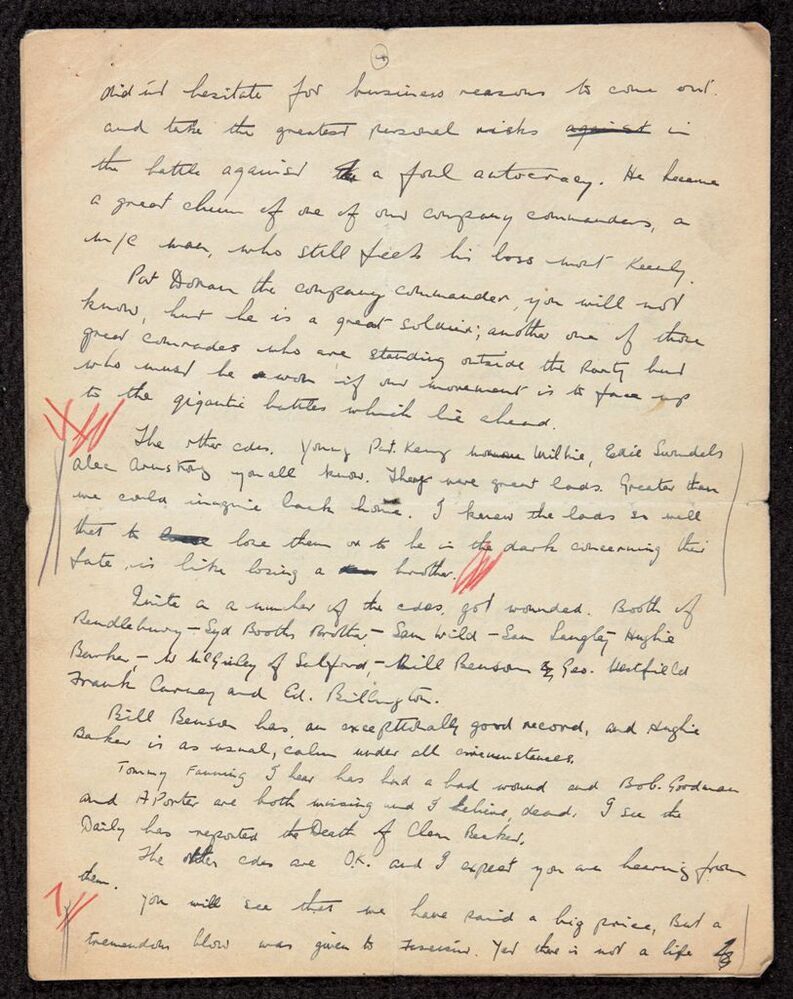 did'nt hesitate for business reasons to come out.
and take the greatest personal risks against in
the battle against the a foul autocracy. He became
a great chum of one of our company commanders, a
M/C man, who still feels his loss most keenly.
Pat Doran the company commander, you will not
know, but he is a great soldier; another one of those
great comrades who are standing outside the Party but
who must be won if our movement is to face up
to the gigantic battles which lie ahead.
The other cdes. Young Pat. Keny Wilkie, Edie Swindels
alec Armstrong you all know. They were great lads. Greater than
we could imagine back home. I knew the lads so well
that to lose them or to be in the dark concerning their
fate, is like losing a brother.
Quite a a number of the cdes, got wounded. Booth of
Pendlebury – Syd Booths Brother – Sam Wild – Sam Langley Hughie
Barker, – W McGinley of Salford, – Bill Benson & Geo. Westfield
Frank Curney and Ed. Billington.
Bill Benson has, an exceptionally good record, and Hughie
Barker is as usual, calm under all circumstances.
Tommy Fanning I hear has had a bad wound and Bob. Goodman
and A Porter are both missing and I believe, dead. I see the
Daily has reported the Death of Clem Becket.
The other cdes are O.K. and I expect you are hearing from
them.
You will see that we have paid a big price, But a
tremendous blow was given to Fascism. Yet there is not a life